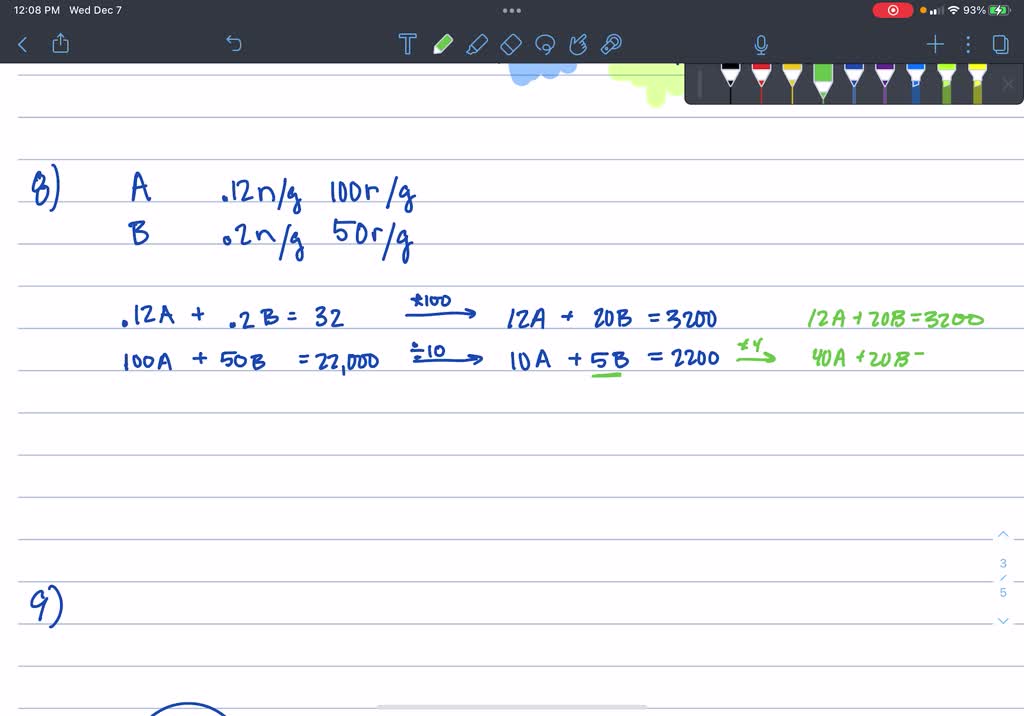 12:08 PM Wed Dec 7 93%
8) A .12n/g 100r/g
B .2n/g 50r/g
.12A + .2B = 32 *100 12A + 20B = 3200 12A + 20B = 3200
100A + 50B = 22,000 ÷10 10A + 5B = 2200 *4 40A + 20B =
3
/
5
9)